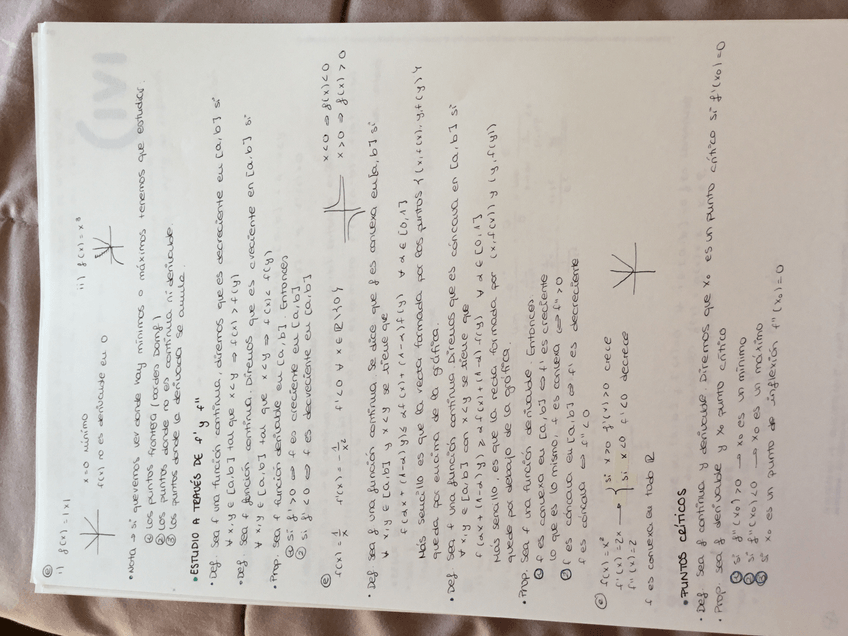 e
i) f(x) = |x|
x=0 mínimo
f(x) no es derivable en 0
ii) f(x) = x³
• Nota → si queremos ver donde hay mínimos o máximos tenemos que estudiar:
① Los puntos frontera (bordes domf)
② Los puntos donde no es continua ni derivable
③ Los puntos donde la derivada se anula.
• ESTUDIO A TRAVÉS DE f' y f''
• Def Sea f una función continua, diremos que es decreciente en [a,b] si
∀ x,y ∈ [a,b] tal que x<y ⇒ f(x) > f(y)
• Def Sea f función continua. Diremos que es creciente en [a,b] si
∀ x,y ∈ [a,b] tal que x<y ⇒ f(x) < f(y)
• Prop. Sea f función derivable en [a,b]. Entonces
① Si f'>0 ⇔ f es creciente en [a,b]
② Si f'<0 ⇔ f es decreciente en [a,b]
e
f(x) = 1/x f'(x) = -1/x² f'<0 ∀ x ∈ ℝ\{0}
x<0 ⇒ f(x)<0
x>0 ⇒ f(x)>0
• Def Sea f una función continua se dice que f es convexa en [a,b] si
∀ x,y ∈ [a,b] y x<y se tiene que
f(αx + (1-α)y) ≤ αf(x) + (1-α)f(y) ∀ α ∈ [0,1]
Más sencillo es que la recta formada por los puntos {(x,f(x)), (y,f(y)}
queda por encima de la gráfica.
• Def Sea f una función continua. Diremos que es cóncava en [a,b] si
∀ x,y ∈ [a,b] con x<y se tiene que
f(αx + (1-α)y) ≥ αf(x) + (1-α)f(y) ∀ α ∈ [0,1]
Más sencillo, es que la recta formada por (x,f(x)) y (y,f(y))
quede por debajo de la gráfica.
• Prop. Sea f una función derivable. Entonces
① f es convexa en [a,b] ⇔ f' es creciente
lo que es lo mismo, f es convexa ⇔ f''>0
② f es cóncava en [a,b] ⇔ f' es decreciente
f es cóncava ⇔ f''<0
e f(x) = x²
f'(x) = 2x → { si x>0 f'(x)>0 crece
si x<0 f'<0 decrece
f''(x) = 2
f es convexa en todo ℝ
• PUNTOS CRÍTICOS
• Def Sea f continua y derivable. Diremos que x₀ es un punto crítico si f'(x₀) = 0
• Prop. Sea f derivable y x₀ punto crítico
① Si f''(x₀) > 0 → x₀ es un mínimo
② Si f''(x₀) < 0 → x₀ es un máximo
③ Si x₀ es un punto de inflexión f''(x₀) = 0